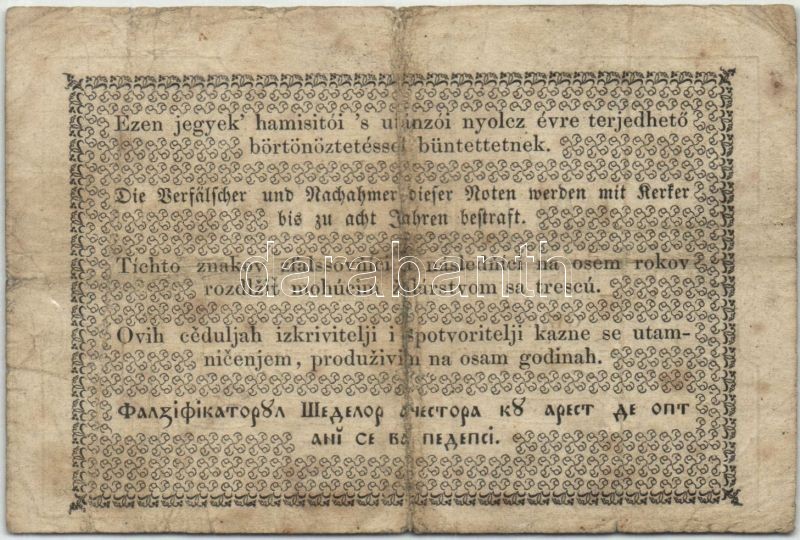 Ezen jegyek’ hamisitói ’s utánzói nyolcz évre terjedhető
börtönöztetéssel büntettetnek.
Die Verfälscher und Nachahmer dieser Noten werden mit Kerker
bis zu acht Jahren bestraft.
Tíchto znakov na osem rokov
mohúcim sa trescú.
Ovih cěduljah izkrivitelji i spotvoritelji kazne se utam-
ničenjem, produživim na osam godinah.
Фалzіфікаторꙋл Шеделор ачестора кꙋ арест де опт
анĭ се ва педепсі.
darabanth